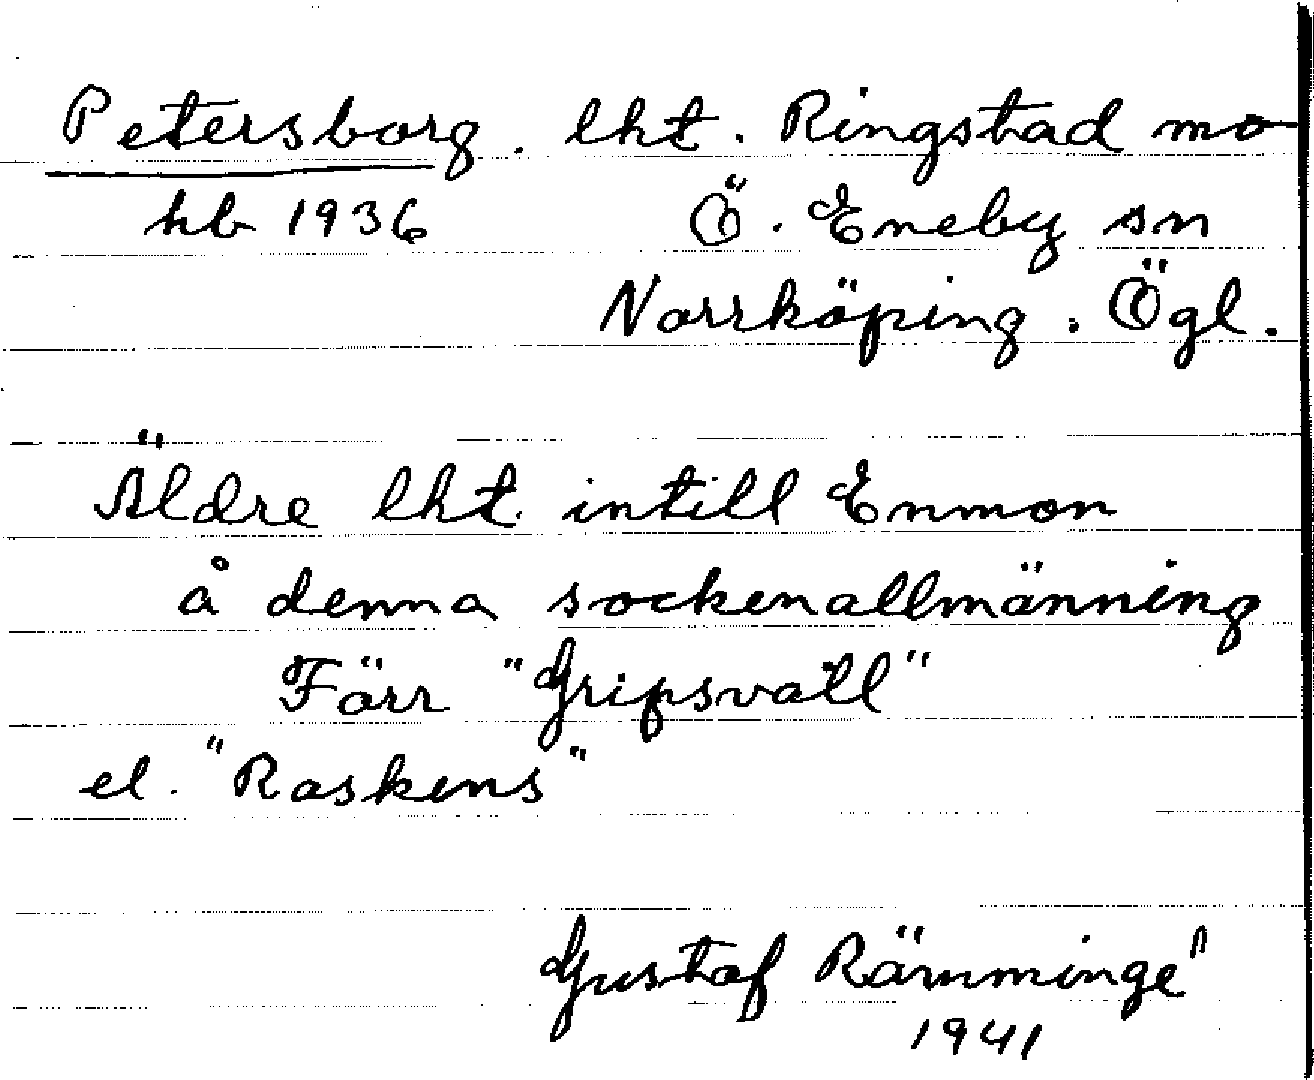 Petersborg. lht. Ringstad mo
hb 1936 Ö. Eneby sn
Norrköping. Ögl.
Äldre lht. intill Enmon
å denna sockenallmänning
Förr "Gripsvall"
el. "Raskens"
Gustaf Rämminge"
1941